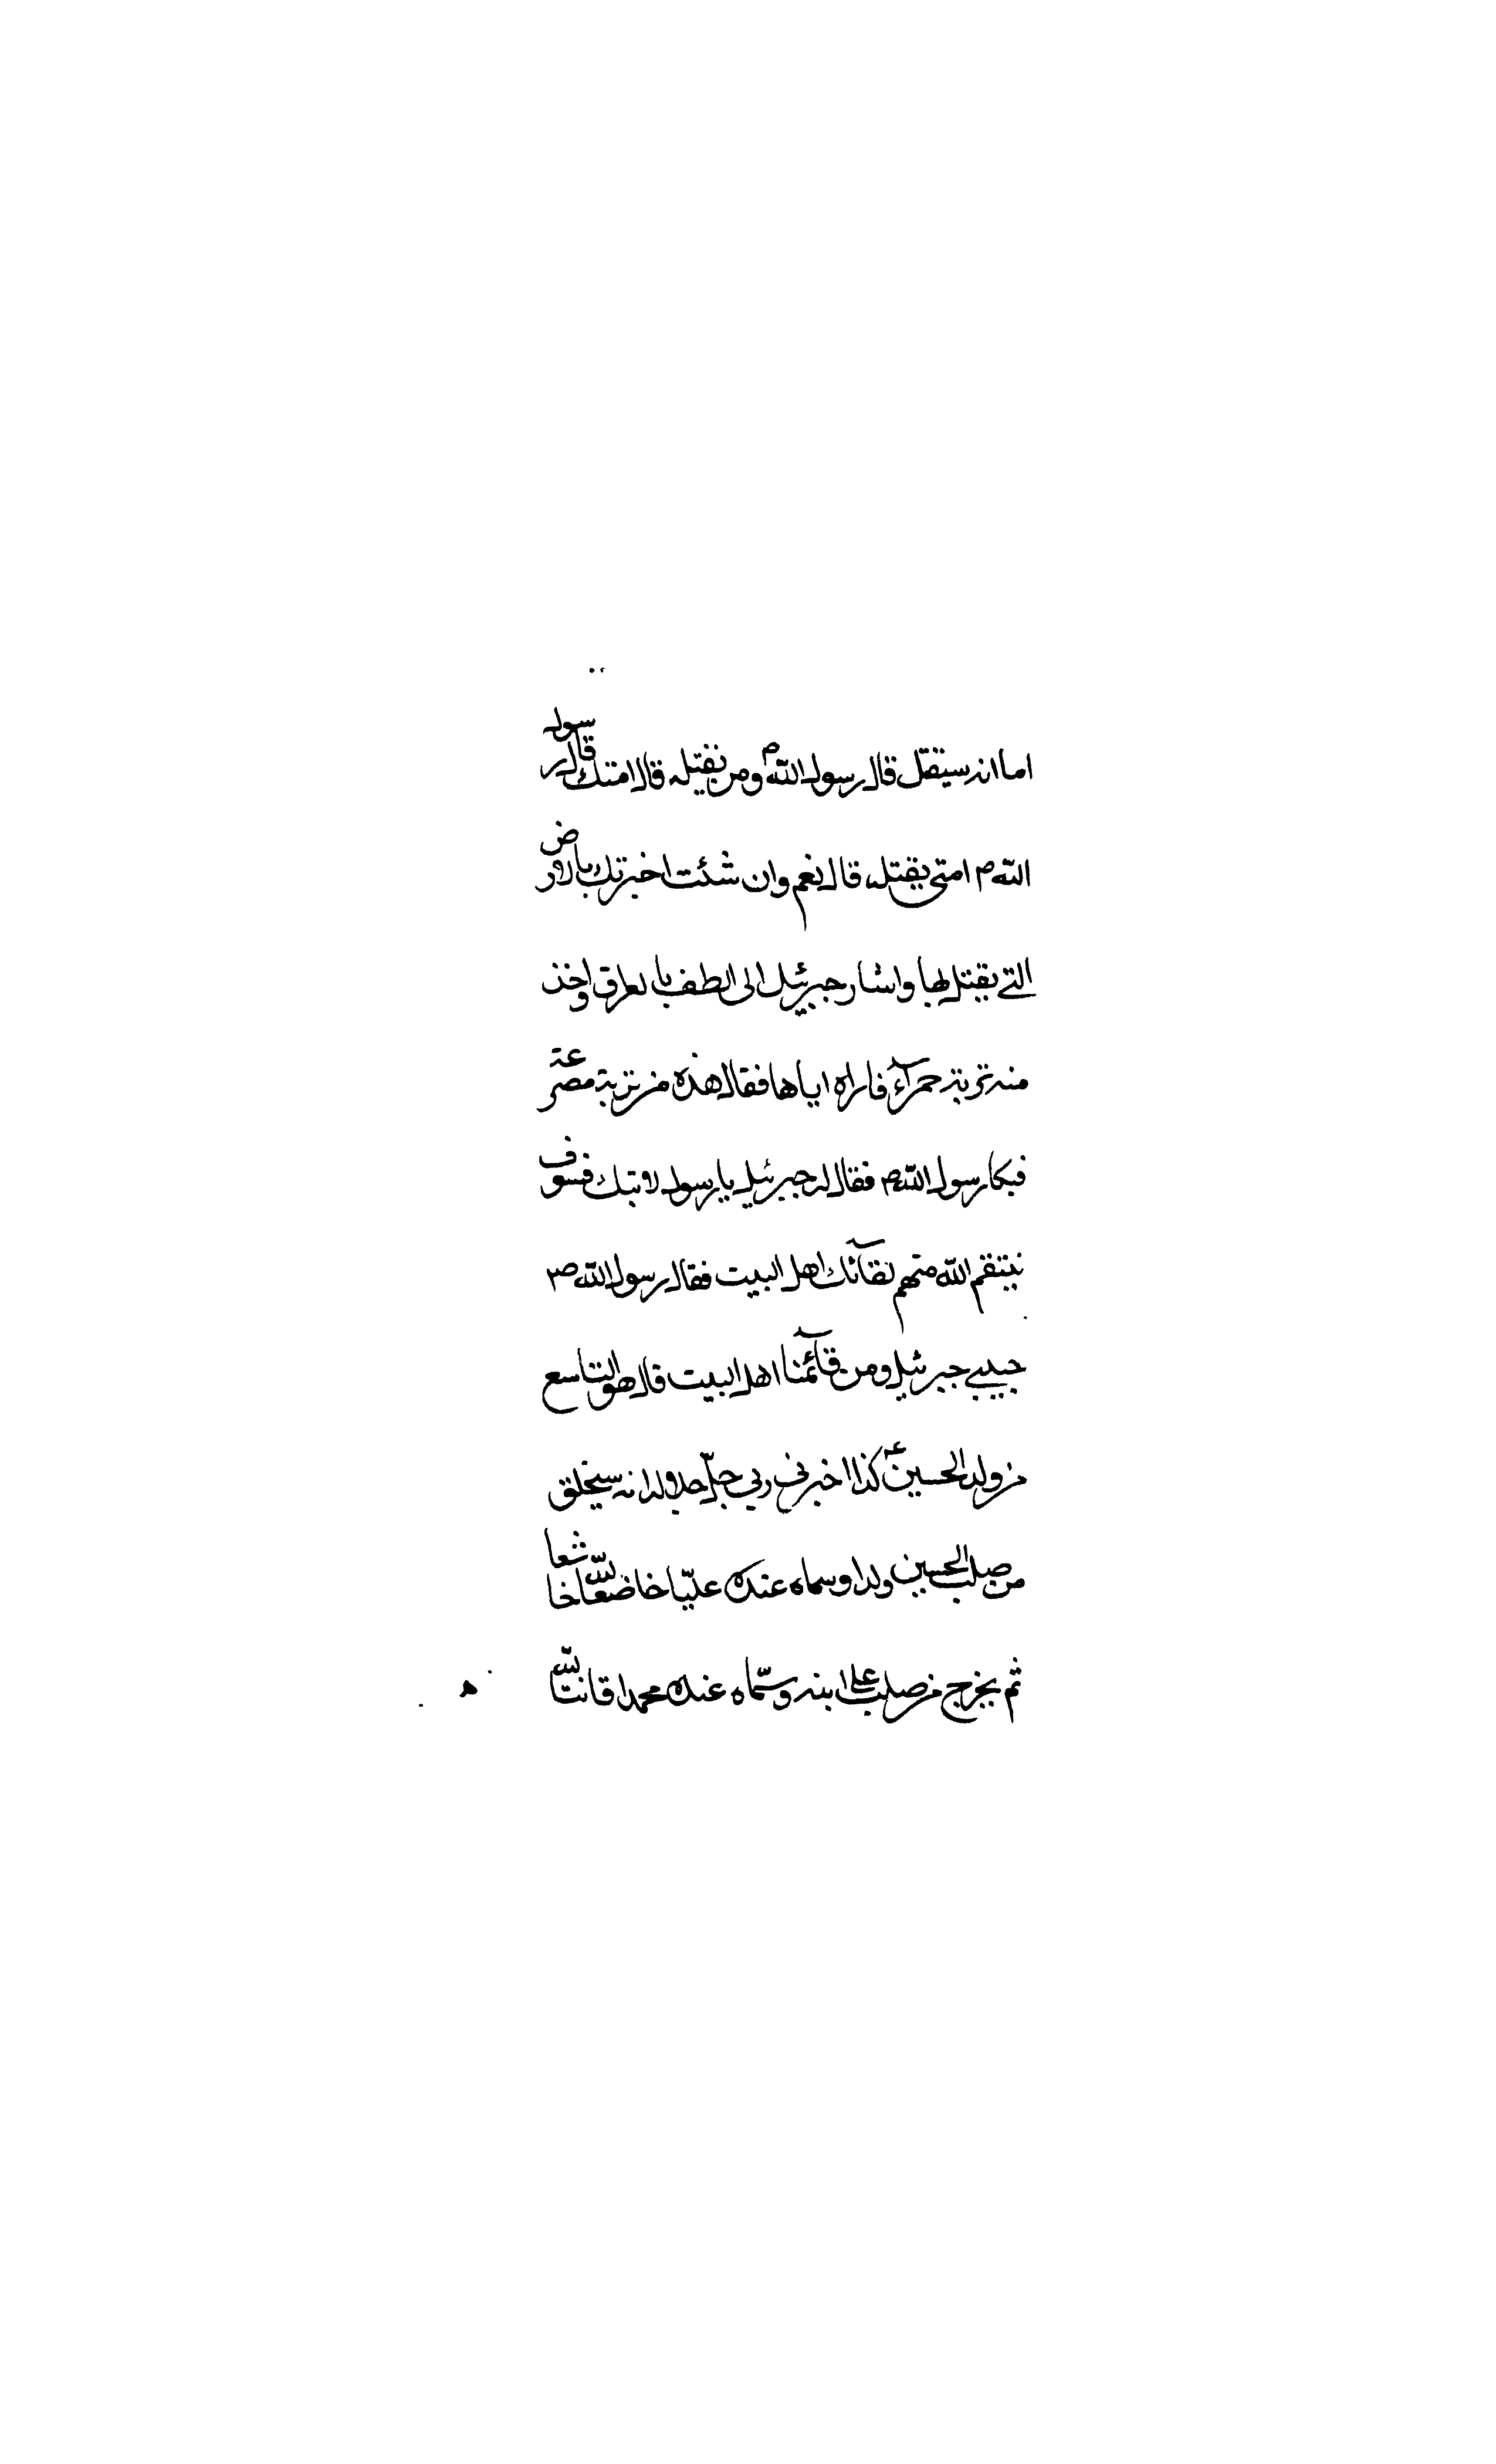 اما انه سيقتل قال رسول الله ص ومن يقتله قال امتك قال رسول
الله ص امتي يقتله قال نعم وان شئت اخبرتك بالارض
التي يقتل بها واشار جبرئيل الى الطف بالعراق واخذ
منه تربة حمرآء فاراه اياها فقال هذه من تربة مصرعه
فبكا رسول الله ص فقال له جبرئيل يا رسول لا تبك فسوف
ينتقم الله منهم بقآئمك اهل البيت فقال رسول الله ص
حبيبي جبرئيل ومن قآئمنا اهل البيت قال هو التاسع
من ولد الحسين ع كذا اخبرني ربي جلّ جلاله انه سيخلق
من صلب الحسين ولدا وسماه عنده عليّا خاضعا لله خاشعا
ثم يخرج من صلب علي ابنه وسمّاه عنده محمدا قانتا لله